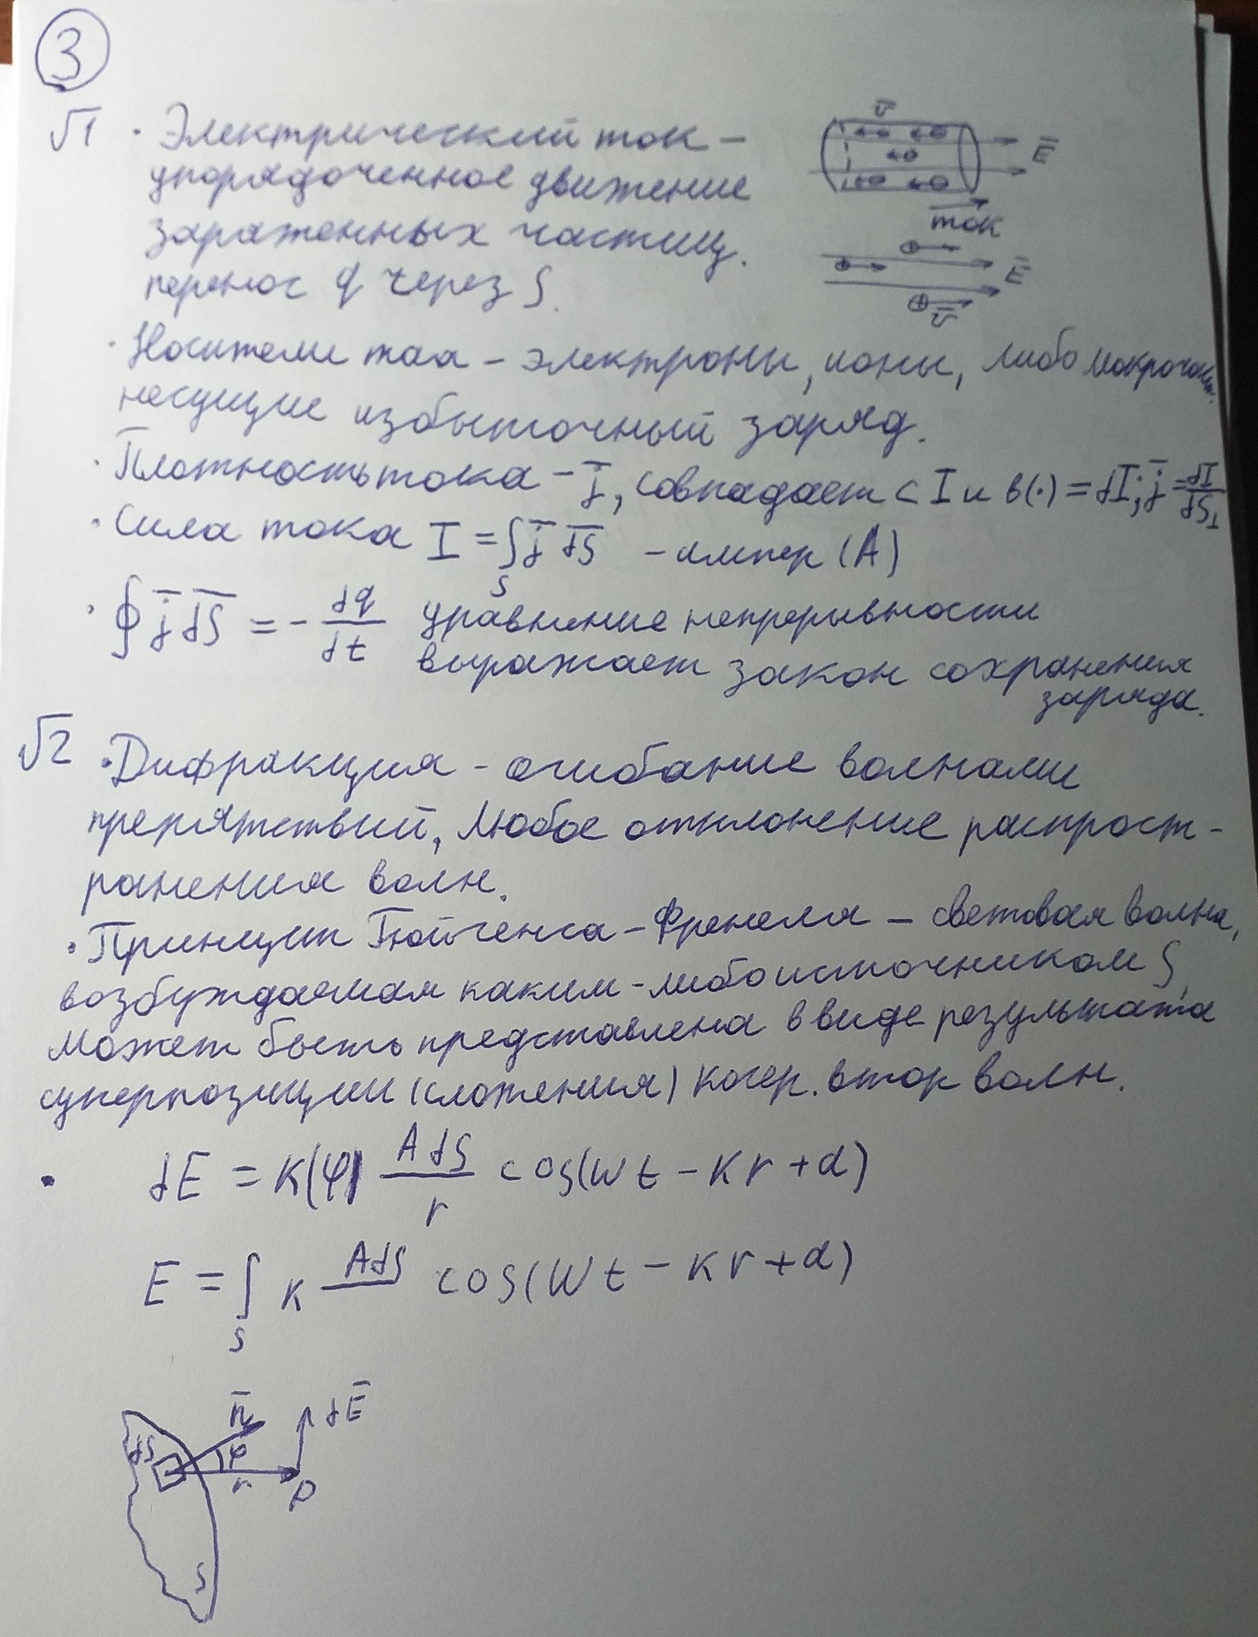 3
√1 · Электрический ток –
упорядоченное движение
заряженных частиц.
перенос q через S.
v̅
E̅
ток
E̅
v̅
· Носители тока – электроны, ионы, либо макрочаст.
несущие избыточный заряд.
· Плотность тока – j̅, совпадает с I и в(·) = dI; j̅ = dI/dS⊥
· Сила тока I = ∫ j̅ dS̅ – ампер (А)
S
· ∮ j̅ dS̅ = - dq/dt уравнение непрерывности
выражает закон сохранения
заряда.
√2 · Дифракция – огибание волнами
препятствий, любое отклонение распрост-
ранения волн.
· Принцип Гюйгенса – Френеля – световая волна,
возбуждаемая каким-либо источником S,
может быть представлена в виде результата
суперпозиции (сложения) когер. втор волн.
· dE = K(φ) AdS/r cos(wt – kr + α)
E = ∫ K AdS cos(wt – kr + α)
S
n̅
dE̅
dS
φ
r
P
S